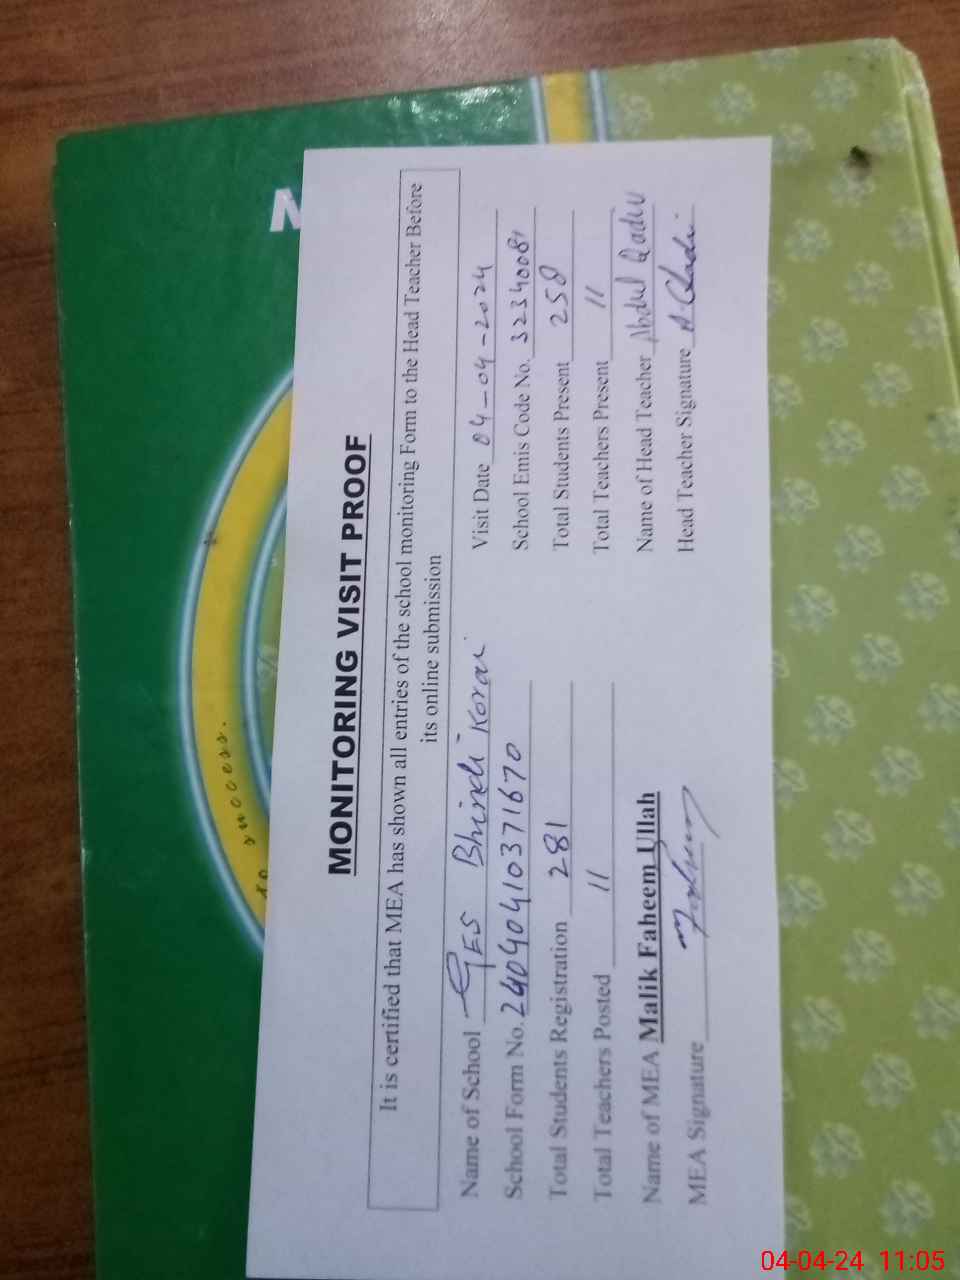 M
to success.
MONITORING VISIT PROOF
It is certified that MEA has shown all entries of the school monitoring Form to the Head Teacher Before
its online submission
Name of School GES Bhindi Korai
Visit Date 04-04-2024
School Form No. 24040410371670
School Emis Code No. 32340081
Total Students Registration 281
Total Students Present 258
Total Teachers Posted 11
Total Teachers Present 11
Name of MEA Malik Faheem Ullah
Name of Head Teacher Abdul Qadir
MEA Signature Faheem
Head Teacher Signature A Qadir
04-04-24 11:05